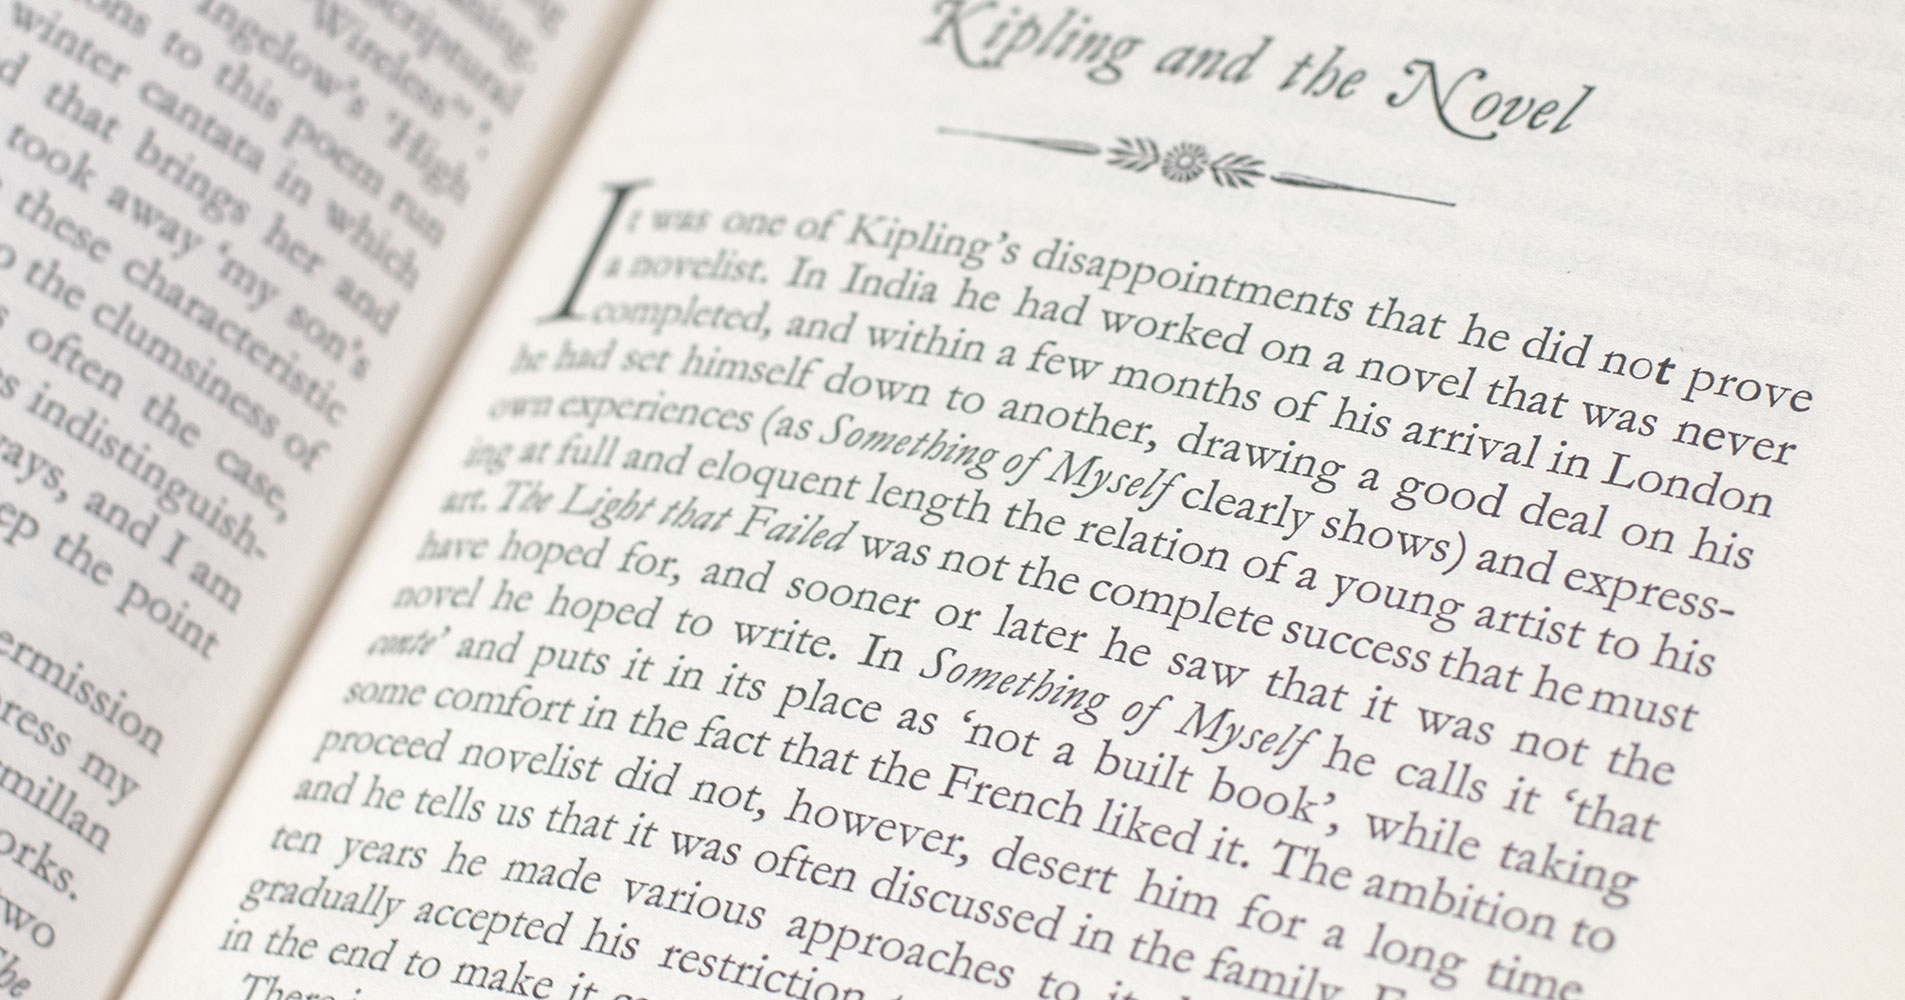 scriptural
'Wireless"',
Ingelow's 'High
ons to this poem run
winter cantata in which
d that brings her and
took away 'my son's
these characteristic
o the clumsiness of
s often the case,
s indistinguish-
ays, and I am
ep the point
ermission
ress my
millan
orks.
two
Kipling and the Novel
It was one of Kipling's disappointments that he did not prove
a novelist. In India he had worked on a novel that was never
completed, and within a few months of his arrival in London
he had set himself down to another, drawing a good deal on his
own experiences (as Something of Myself clearly shows) and express-
ing at full and eloquent length the relation of a young artist to his
art. The Light that Failed was not the complete success that he must
have hoped for, and sooner or later he saw that it was not the
novel he hoped to write. In Something of Myself he calls it 'that
conte' and puts it in its place as 'not a built book', while taking
some comfort in the fact that the French liked it. The ambition to
proceed novelist did not, however, desert him for a long time
and he tells us that it was often discussed in the family.
ten years he made various approaches to it
gradually accepted his restriction
in the end to make it
There